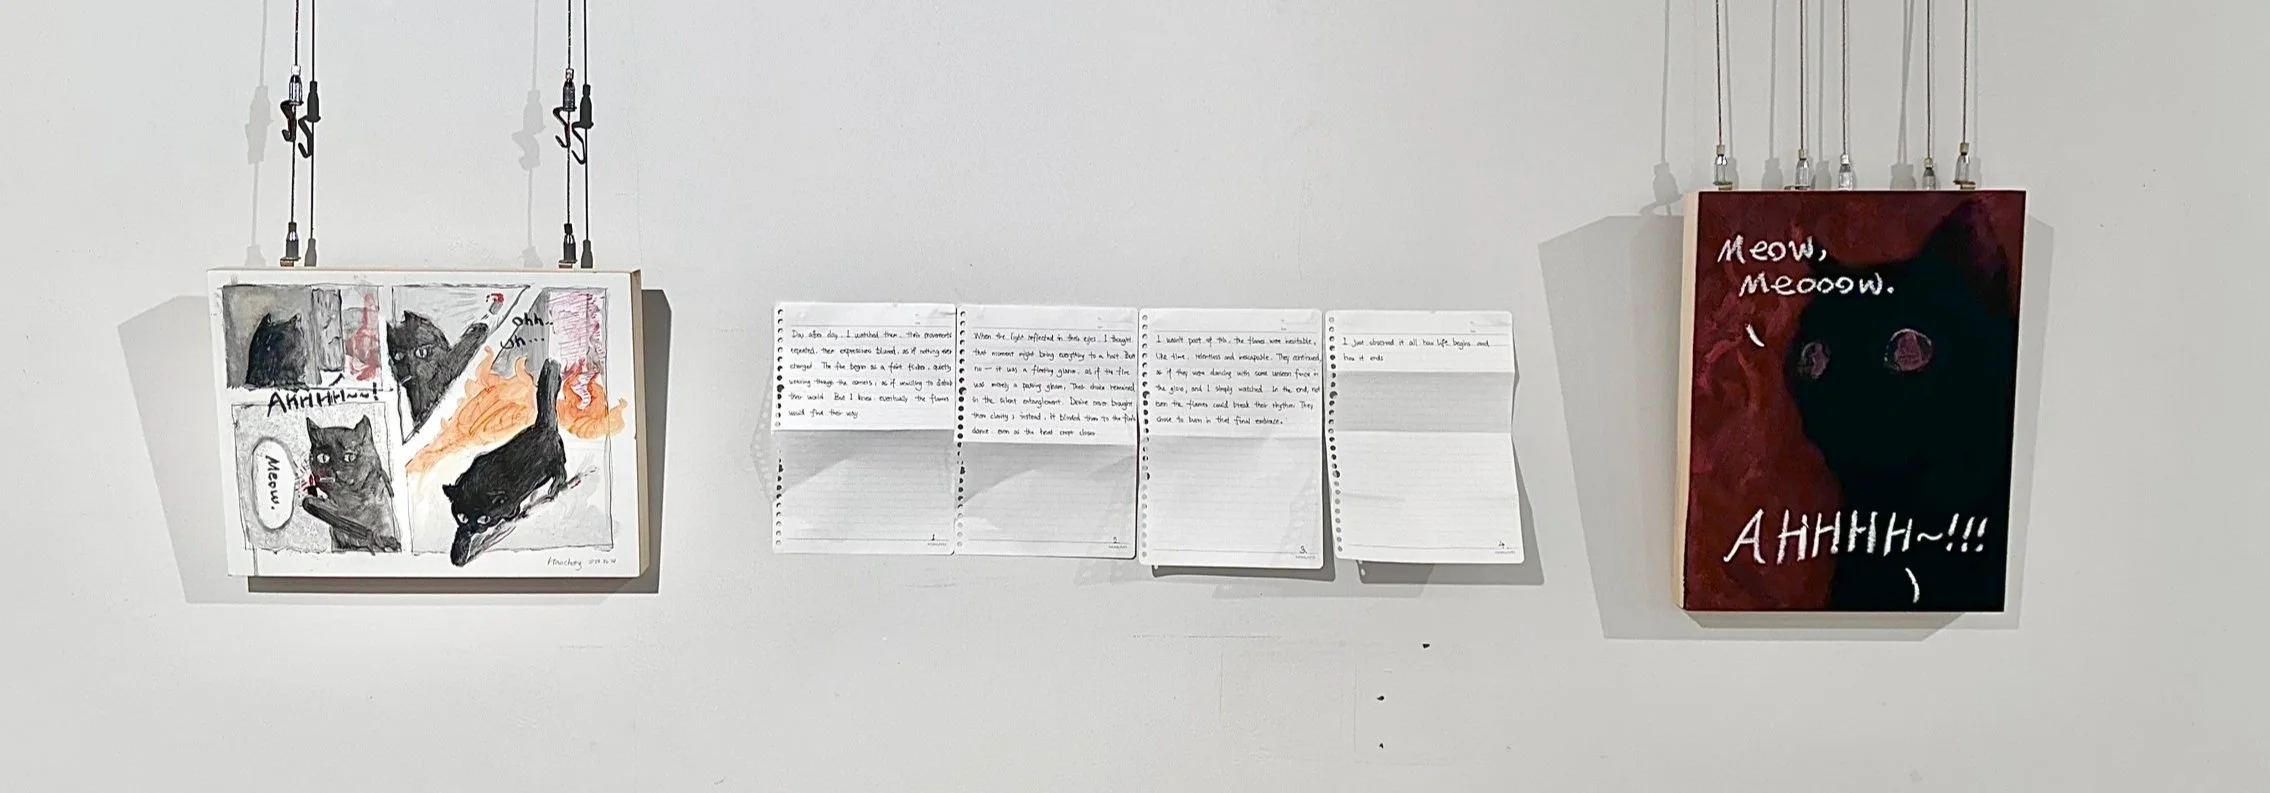 Ohh..
uh...
AHHHH~~!
Meow.
Day after day, I watched them. their movements
repeated, their expressions blurred, as if nothing ever
changed. The fire began as a faint flicker, quietly
weaving through the corners, as if unwilling to disturb
their world. But I knew, eventually, the flames
would find their way.
1
When the light reflected in their eyes, I thought
that moment might bring everything to a halt. But
no — it was a fleeting glance, as if the fire
was merely a passing gleam. Their choice remained
in the silent entanglement. Desire never brought
them clarity; instead, it blinded them to the fire's
dance, even as the heat crept closer
2
I wasn't part of this. the flames were inevitable,
like time, relentless and inescapable. They continued,
as if they were dancing with some unseen force in
the glow, and I simply watched. In the end, not
even the flames could break their rhythm. They
chose to burn in that final embrace.
3
I just observed it all. how life begins and
how it ends
4
Meow,
Meooow.
AHHHH~!!!